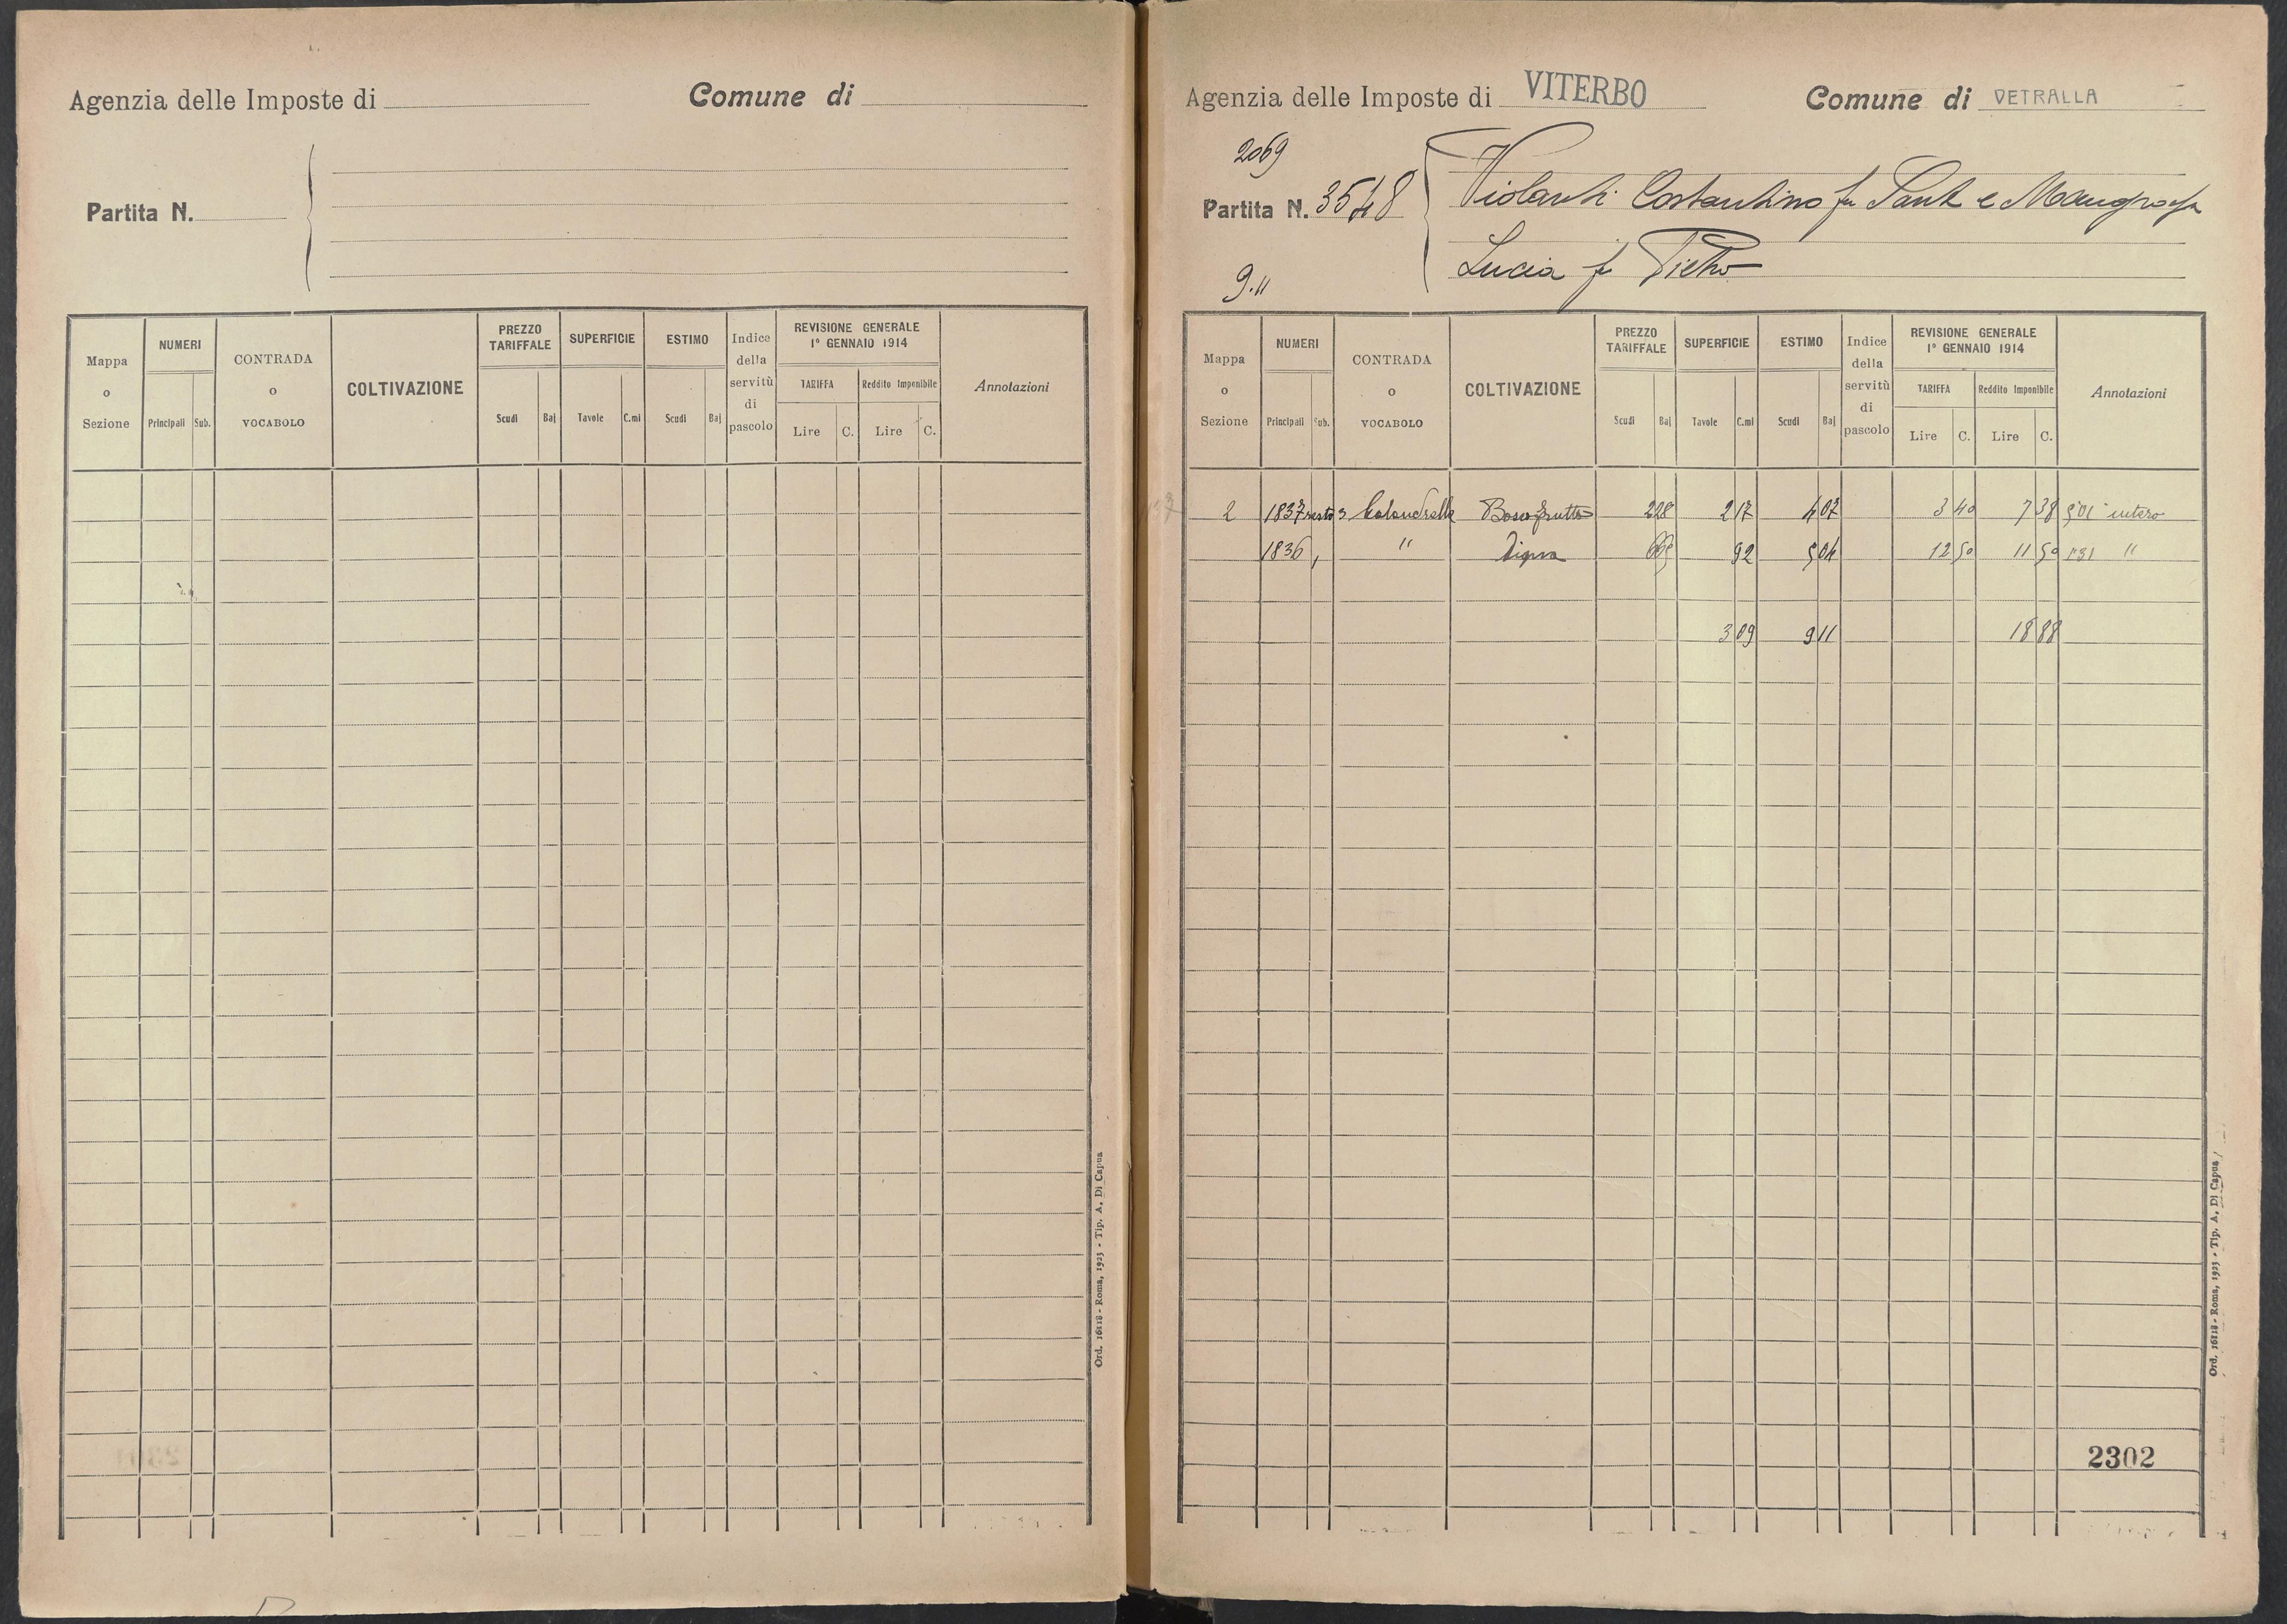 Agenzia delle Imposte di
Comune di
Partita N.
Mappa o Sezione
NUMERI
Principali
Sub.
CONTRADA o VOCABOLO
COLTIVAZIONE
PREZZO TARIFFALE
Scudi
Baj
SUPERFICIE
Tavole
C.mi
ESTIMO
Scudi
Baj
Indice della servitù di pascolo
REVISIONE GENERALE
1° GENNAIO 1914
TARIFFA
Lire
C.
Reddito Imponibile
Lire
C.
Annotazioni
Ord. 16118 - Roma, 1923 - Tip. A. Di Capua
Agenzia delle Imposte di VITERBO
Comune di VETRALLA
2069
Partita N. 3548
Violanti Costantino fu Sante e
Lucia fu Pietro
9.11
Mappa o Sezione
NUMERI
Principali
Sub.
CONTRADA o VOCABOLO
COLTIVAZIONE
PREZZO TARIFFALE
Scudi
Baj
SUPERFICIE
Tavole
C.mi
ESTIMO
Scudi
Baj
Indice della servitù di pascolo
REVISIONE GENERALE
1° GENNAIO 1914
TARIFFA
Lire
C.
Reddito Imponibile
Lire
C.
Annotazioni
2 1837 resto 3 Calandrella Bosco frutto 2 28 2 17 4 07 3 40 7 38 intero
1836 1 " Vigna 92 5 04 12 50 11 50 "
3 09 9 11 18 88
2302
Ord. 16118 - Roma, 1923 - Tip. A. Di Capua